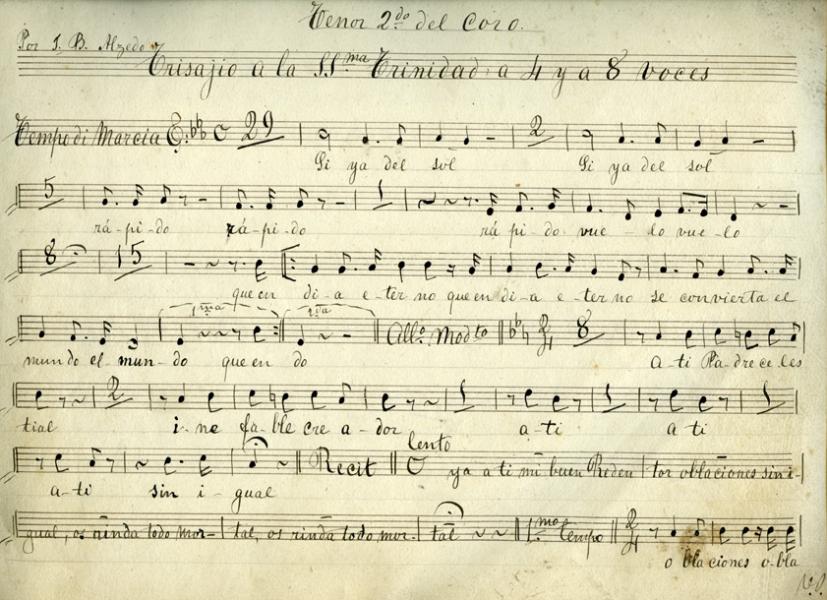 Tenor 2.do del Coro.
Por J. B. Alzedo
Trisajio a la SS.ma Trinidad a 4 y a 8 voces
Tempo di Marcia C 29 2
Gi ya del sol Gi ya del sol
5 1
rá-pi-do rá-pi-do rá pi-do vue-lo vue-lo
8 15
que en di-a e-ter no que en di-a e-ter no se convierta el
1ma 2da All.o Mod.to 2/4 8
mun do el mun-do que en do a-ti Pa-dre ce les
2 1 1 1
tial i-ne fa-ble cre a-dor a-ti a ti
Recit lento C ya a ti mi buen Reden tor oblaciones sin i-
a-ti sin i-gual
gual, os rinda todo mor-tal, os rinda todo mor-tal 1.mo tempo 2/4
o bla ciones o-bla
V.S.